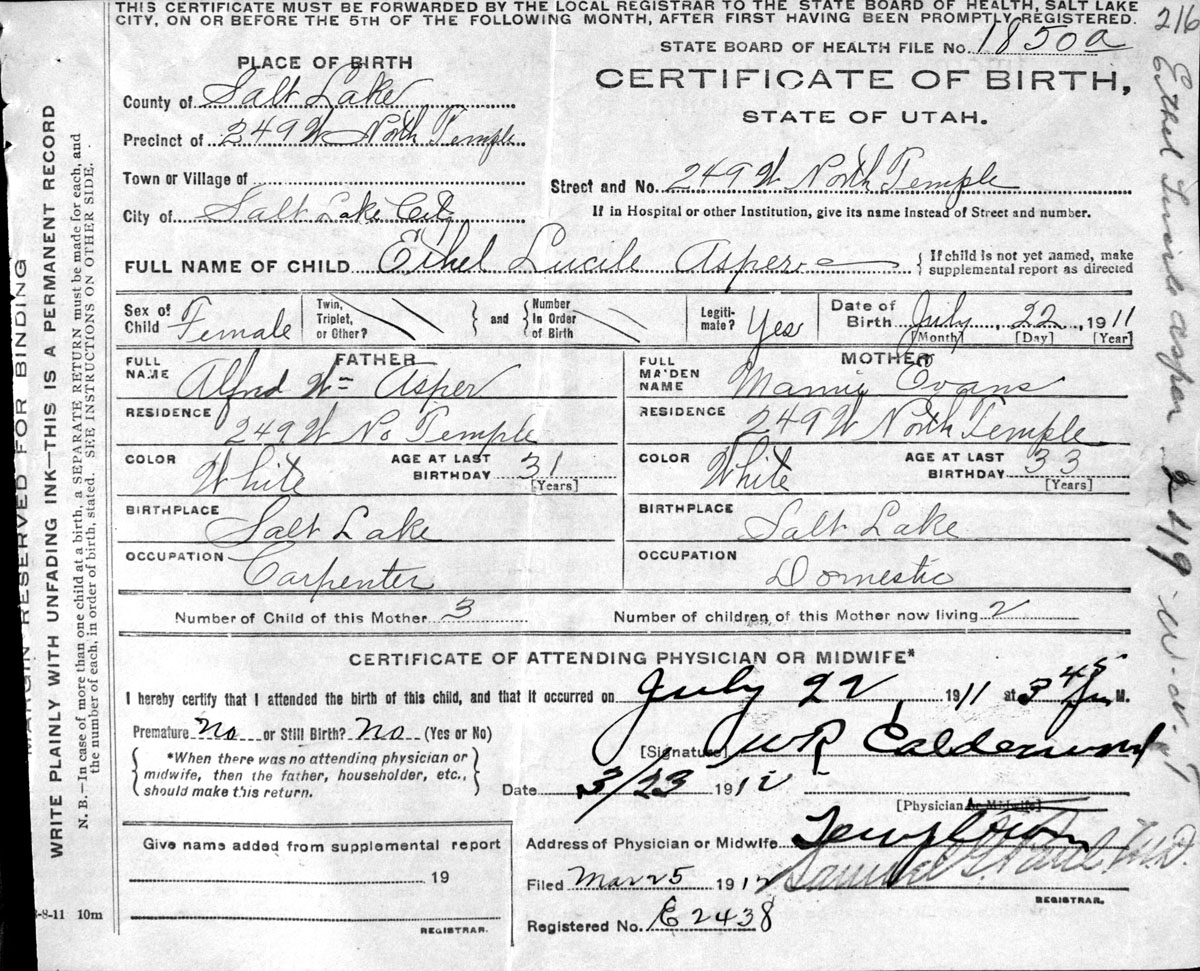 THIS CERTIFICATE MUST BE FORWARDED BY THE LOCAL REGISTRAR TO THE STATE BOARD OF HEALTH, SALT LAKE
CITY, ON OR BEFORE THE 5TH OF THE FOLLOWING MONTH, AFTER FIRST HAVING BEEN PROMPTLY REGISTERED.
216
STATE BOARD OF HEALTH FILE No. 1850a
PLACE OF BIRTH
CERTIFICATE OF BIRTH,
STATE OF UTAH.
County of Salt Lake
Precinct of 249 W North Temple
Town or Village of
Street and No. 249 W North Temple
City of Salt Lake City
If in Hospital or other Institution, give its name instead of Street and number.
FULL NAME OF CHILD Ethel Lucile Asper
{ If child is not yet named, make
supplemental report as directed
Sex of Child Female
Twin, Triplet, or Other?
} and { Number In Order of Birth
Legitimate? Yes
Date of Birth July, 22, 1911
[Month] [Day] [Year]
FATHER
FULL NAME Alfred Wm Asper
RESIDENCE 249 W No Temple
COLOR White AGE AT LAST BIRTHDAY 31 [Years]
BIRTHPLACE Salt Lake
OCCUPATION Carpenter
MOTHER
FULL MAIDEN NAME Mamie Evans
RESIDENCE 249 W North Temple
COLOR White AGE AT LAST BIRTHDAY 33 [Years]
BIRTHPLACE Salt Lake
OCCUPATION Domestic
Number of Child of this Mother 3
Number of children of this Mother now living 2
CERTIFICATE OF ATTENDING PHYSICIAN OR MIDWIFE*
I hereby certify that I attended the birth of this child, and that it occurred on July 22 1911 at 3 45 M.
Premature No or Still Birth? No (Yes or No)
{ *When there was no attending physician or
midwife, then the father, householder, etc.,
should make this return. }
[Signature] W R Calderwood
Date 3/23 1912
[Physician or Midwife]
Address of Physician or Midwife Templeton
Give name added from supplemental report
19
REGISTRAR.
Filed Mar 25 1912 Samuel G. Paul, M.D.
REGISTRAR.
Registered No. E2438
-8-11 10m
MARGIN RESERVED FOR BINDING
WRITE PLAINLY WITH UNFADING INK—THIS IS A PERMANENT RECORD
N. B.—In case of more than one child at a birth, a SEPARATE RETURN must be made for each, and
the number of each, in order of birth, stated. SEE INSTRUCTIONS ON OTHER SIDE.
Ethel Lucile Asper 249 W. N. T